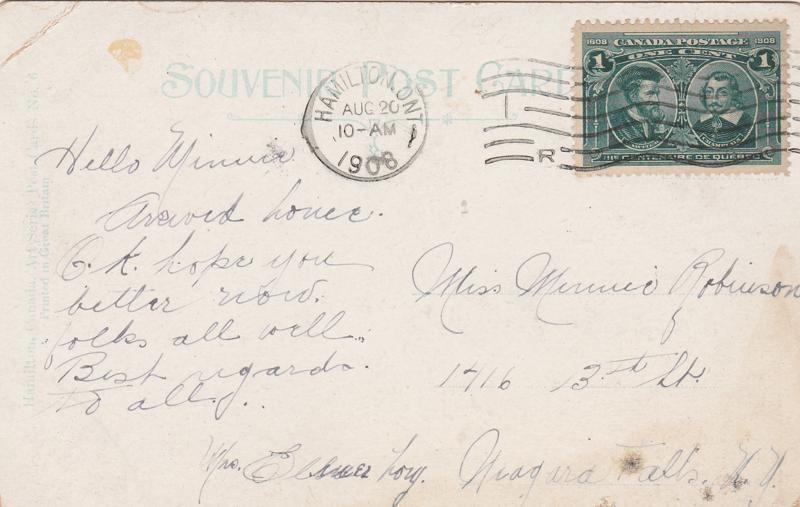 SOUVENIR POST CARD
Hamilton, Canada, Art Series Post Cards No. 6
Printed in Great Britain
HAMILTON, ONT
AUG 20
10-AM
1908
R
1608 CANADA POSTAGE 1908
ONE CENT
1 1
CARTIER CHAMPLAIN
IIIE CENTENAIRE DE QUEBEC
Hello Minnie
Areived home.
O.K. hope you
better now.
folks all well.
Best regards.
to all.
Mrs. Elmer
Miss Minnie Robinson
1416 13th St.
Niagara Falls. N.Y.